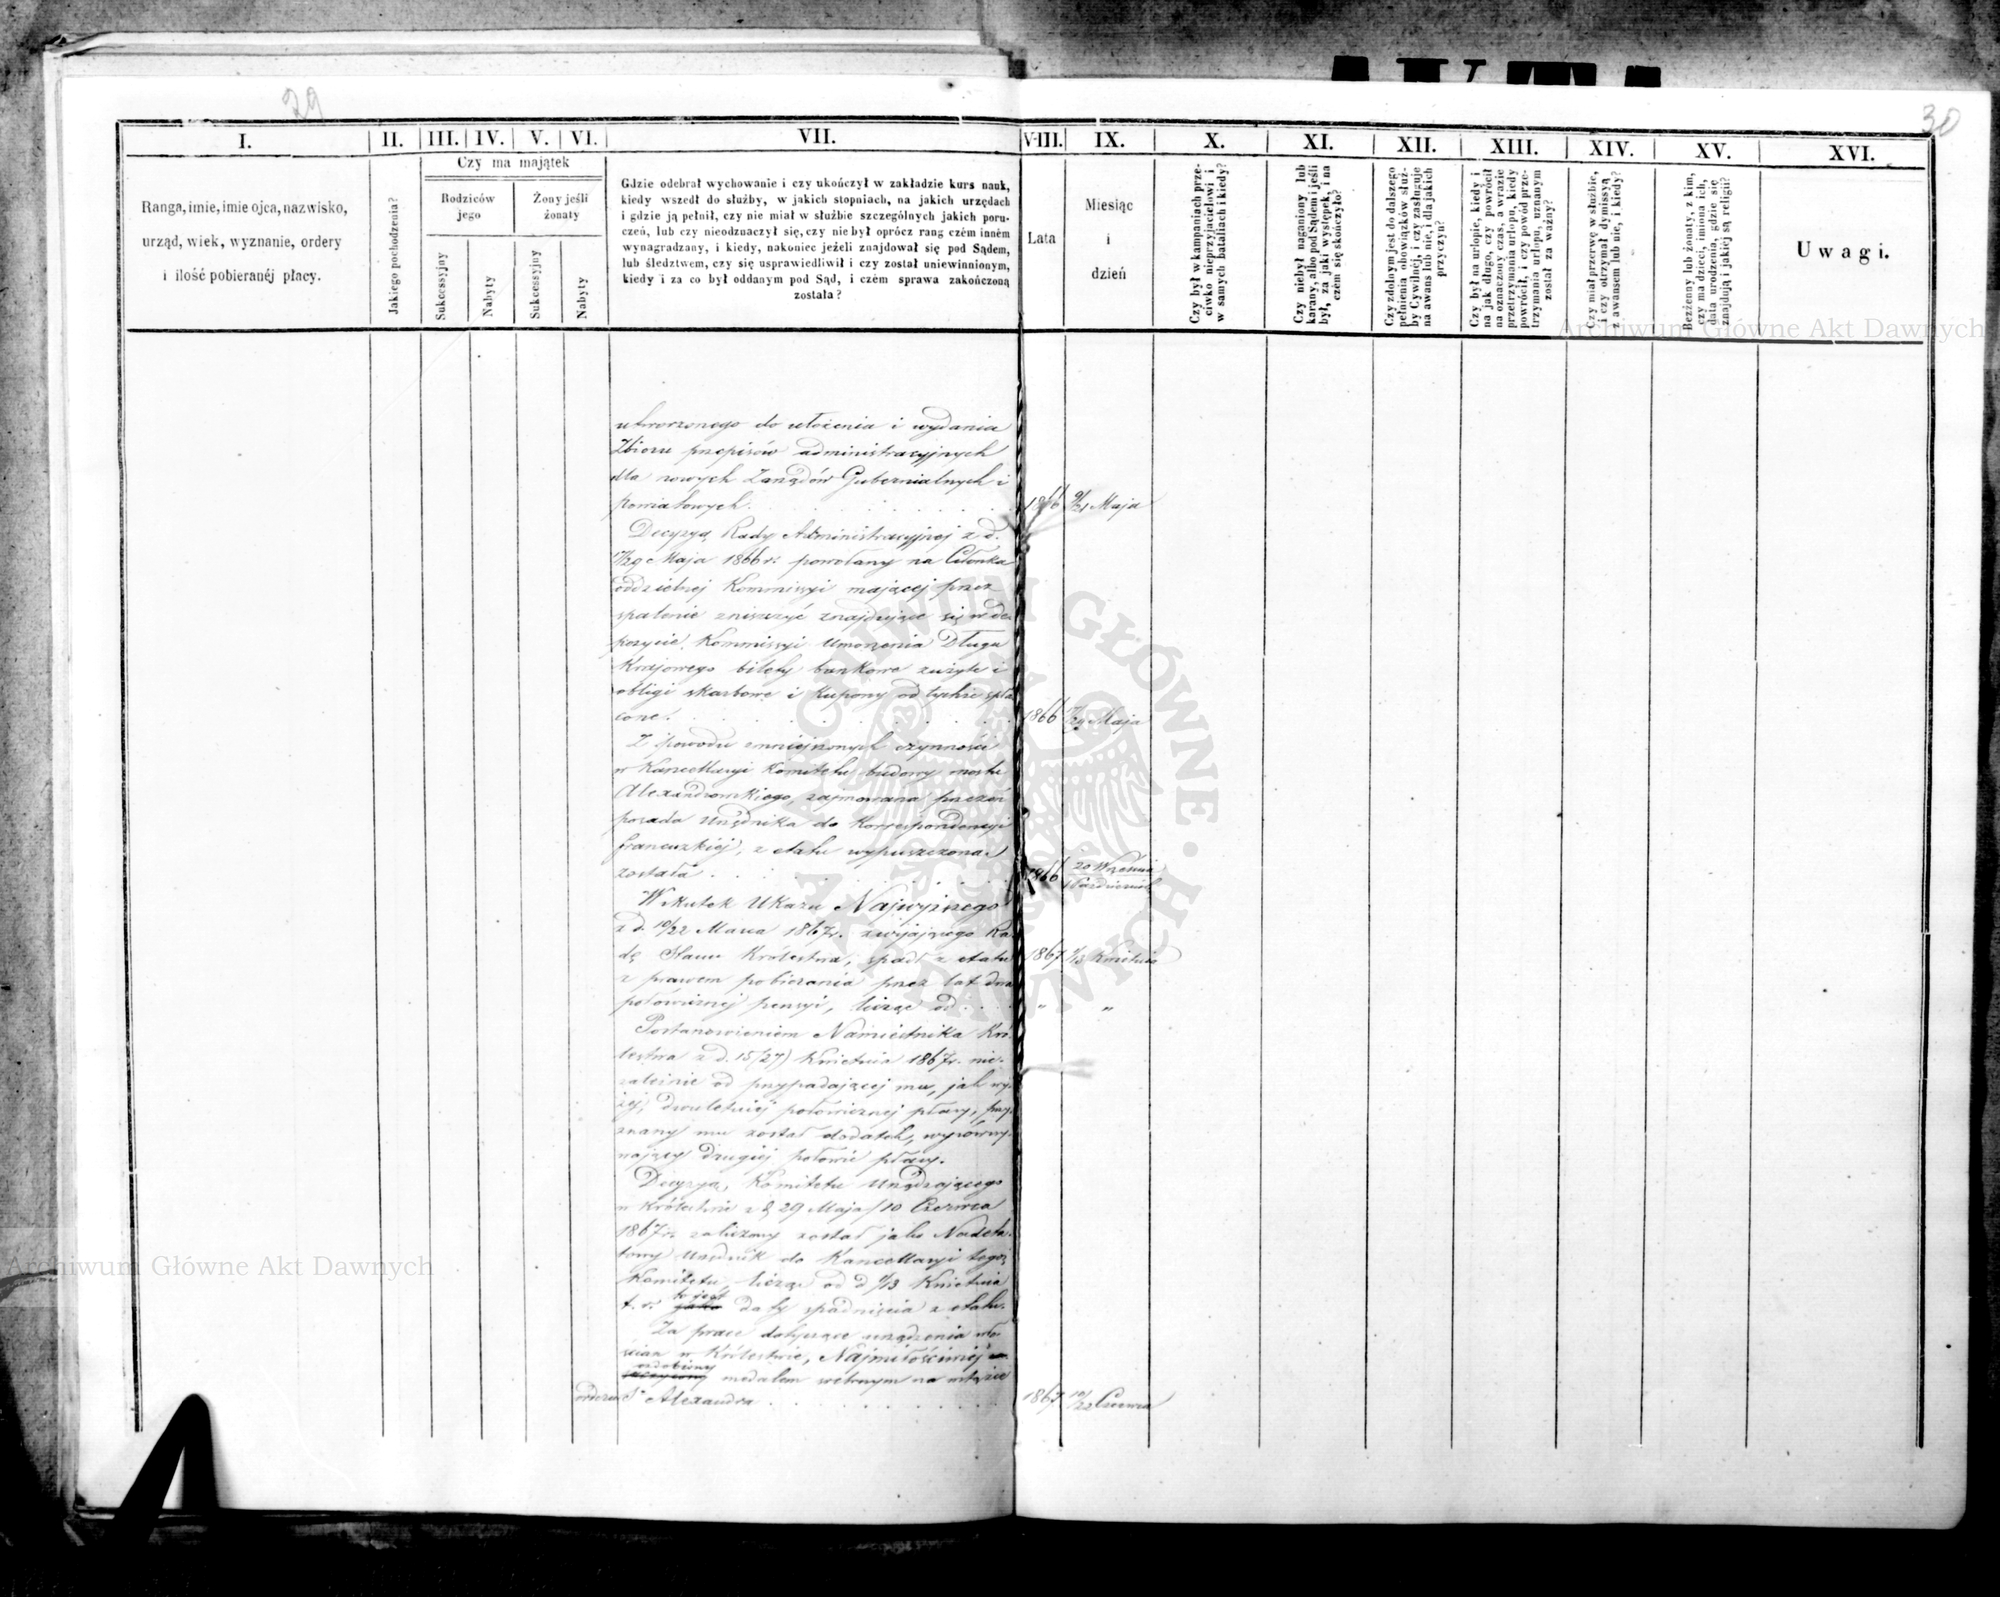 29
30
I. II. III. IV. V. VI. VII. VIII. IX. X. XI. XII. XIII. XIV. XV. XVI.
Ranga, imie, imie ojca, nazwisko,
urząd, wiek, wyznanie, ordery
i ilość pobieranéj płacy.
Jakiego pochodzenia?
Czy ma majątek
Rodziców
jego
Żony jeśli
żonaty
Sukcessyjny
Nabyty
Sukcessyjny
Nabyty
Gdzie odebrał wychowanie i czy ukończył w zakładzie kurs nauk,
kiedy wszedł do służby, w jakich stopniach, na jakich urzędach
i gdzie ją pełnił, czy nie miał w służbie szczególnych jakich poru-
czeń, lub czy nieodznaczył się, czy nie był oprócz rang czém inném
wynagradzany, i kiedy, nakoniec jeżeli znajdował się pod Sądem,
lub śledztwem, czy się usprawiedliwił i czy został uniewinnionym,
kiedy i za co był oddanym pod Sąd, i czém sprawa zakończoną
została?
Lata
Miesiąc
i
dzień
Czy był w kampaniach prze-
ciwko nieprzyjacielowi i
w samych bataliach i kiedy?
Czy niebył naganiony lub
karany, albo pod Sądem i jeśli
był, za jaki występek, i na
czém się skończyło?
Czy zdolnym jest do dalszego
pełnienia obowiązków służ-
by Cywilnéj, i czy zasługuje
na awans lub nie, i dla jakich
przyczyn?
Czy był na urlopie, kiedy i
na jak długo, czy powrócił
na oznaczony czas, a w razie
przetrzymania urlopu, kiedy
powrócił, i czy powód prze-
trzymania urlopu, uznanym
został za ważny?
Czy miał przerwę w służbie,
i czy otrzymał dymissyą
z awansem lub nie, i kiedy?
Bezżenny lub żonaty, z kim,
czy ma dzieci, imiona ich,
data urodzenia, gdzie się
znajdują i jakiéj są religii?
Uwagi.
utworzonego do ułożenia i wydania
Zbioru przepisów administracyjnych
dla nowych Zarządów Gubernialnych i
powiatowych. 1866 9/21 Maja
Decyzyą Rady Administracyjnej z d.
17/29 Maja 1866 r. powołany na Członka
oddzielnej Kommissyi mającej przez
spalenie zniszczyć znajdujące się w de-
pozycie Kommissyi Umorzenia Długu
Krajowego bilety bankowe zużyte i
obligi skarbowe i kupony od tychże spła-
cone. 1866 17/29 Maja
Z powodu zmniejszonych czynności
w Kancellaryi Komitetu budowy mostu
Alexandrowskiego, zajmowana przezeń
posada Urzędnika do korrespondencyi
francuzkiéj, z etatu wypuszczona
została 1866 20 Września
Październik
Wskutek Ukazu Najwyższego
z d. 10/22 Marca 1867 r. zwijającego Ra-
dę Stanu Królestwa, spadł z etatu 1867 1/13 Kwietnia
z prawem pobierania przez lat dwa
połowicznej pensyi, licząc od " "
Postanowieniem Namiestnika Kró-
lestwa z d. 15/(27) Kwietnia 1867 r. nie-
zależnie od przypadającej mu, jak wy-
żej, dwuletniej połowicznej płacy, przy-
znany mu został dodatek, wyrówny-
wający drugiej połowie płacy.
Decyzyą Komitetu Urządzającego
w Królestwie z d. 29 Maja/10 Czerwca
1867 r. zaliczony został jako Nadeta-
towy Urzędnik do Kancellaryi tegoż
Komitetu, licząc od d 1/13 Kwietnia
to jest
t. r. jako daty spadnięcia z etatu.
Za prace dotyczące urządzenia wło-
ścian w Królestwie, Najmiłościwiej
ozdobiony
medalem srebrnym na wstążce
orderu Sº Alexandra 1867 10/22 Czerwca
Archiwum Główne Akt Dawnych
Archiwum Główne Akt Dawnych
ARCHIWUM GŁÓWNE AKT DAWNYCH